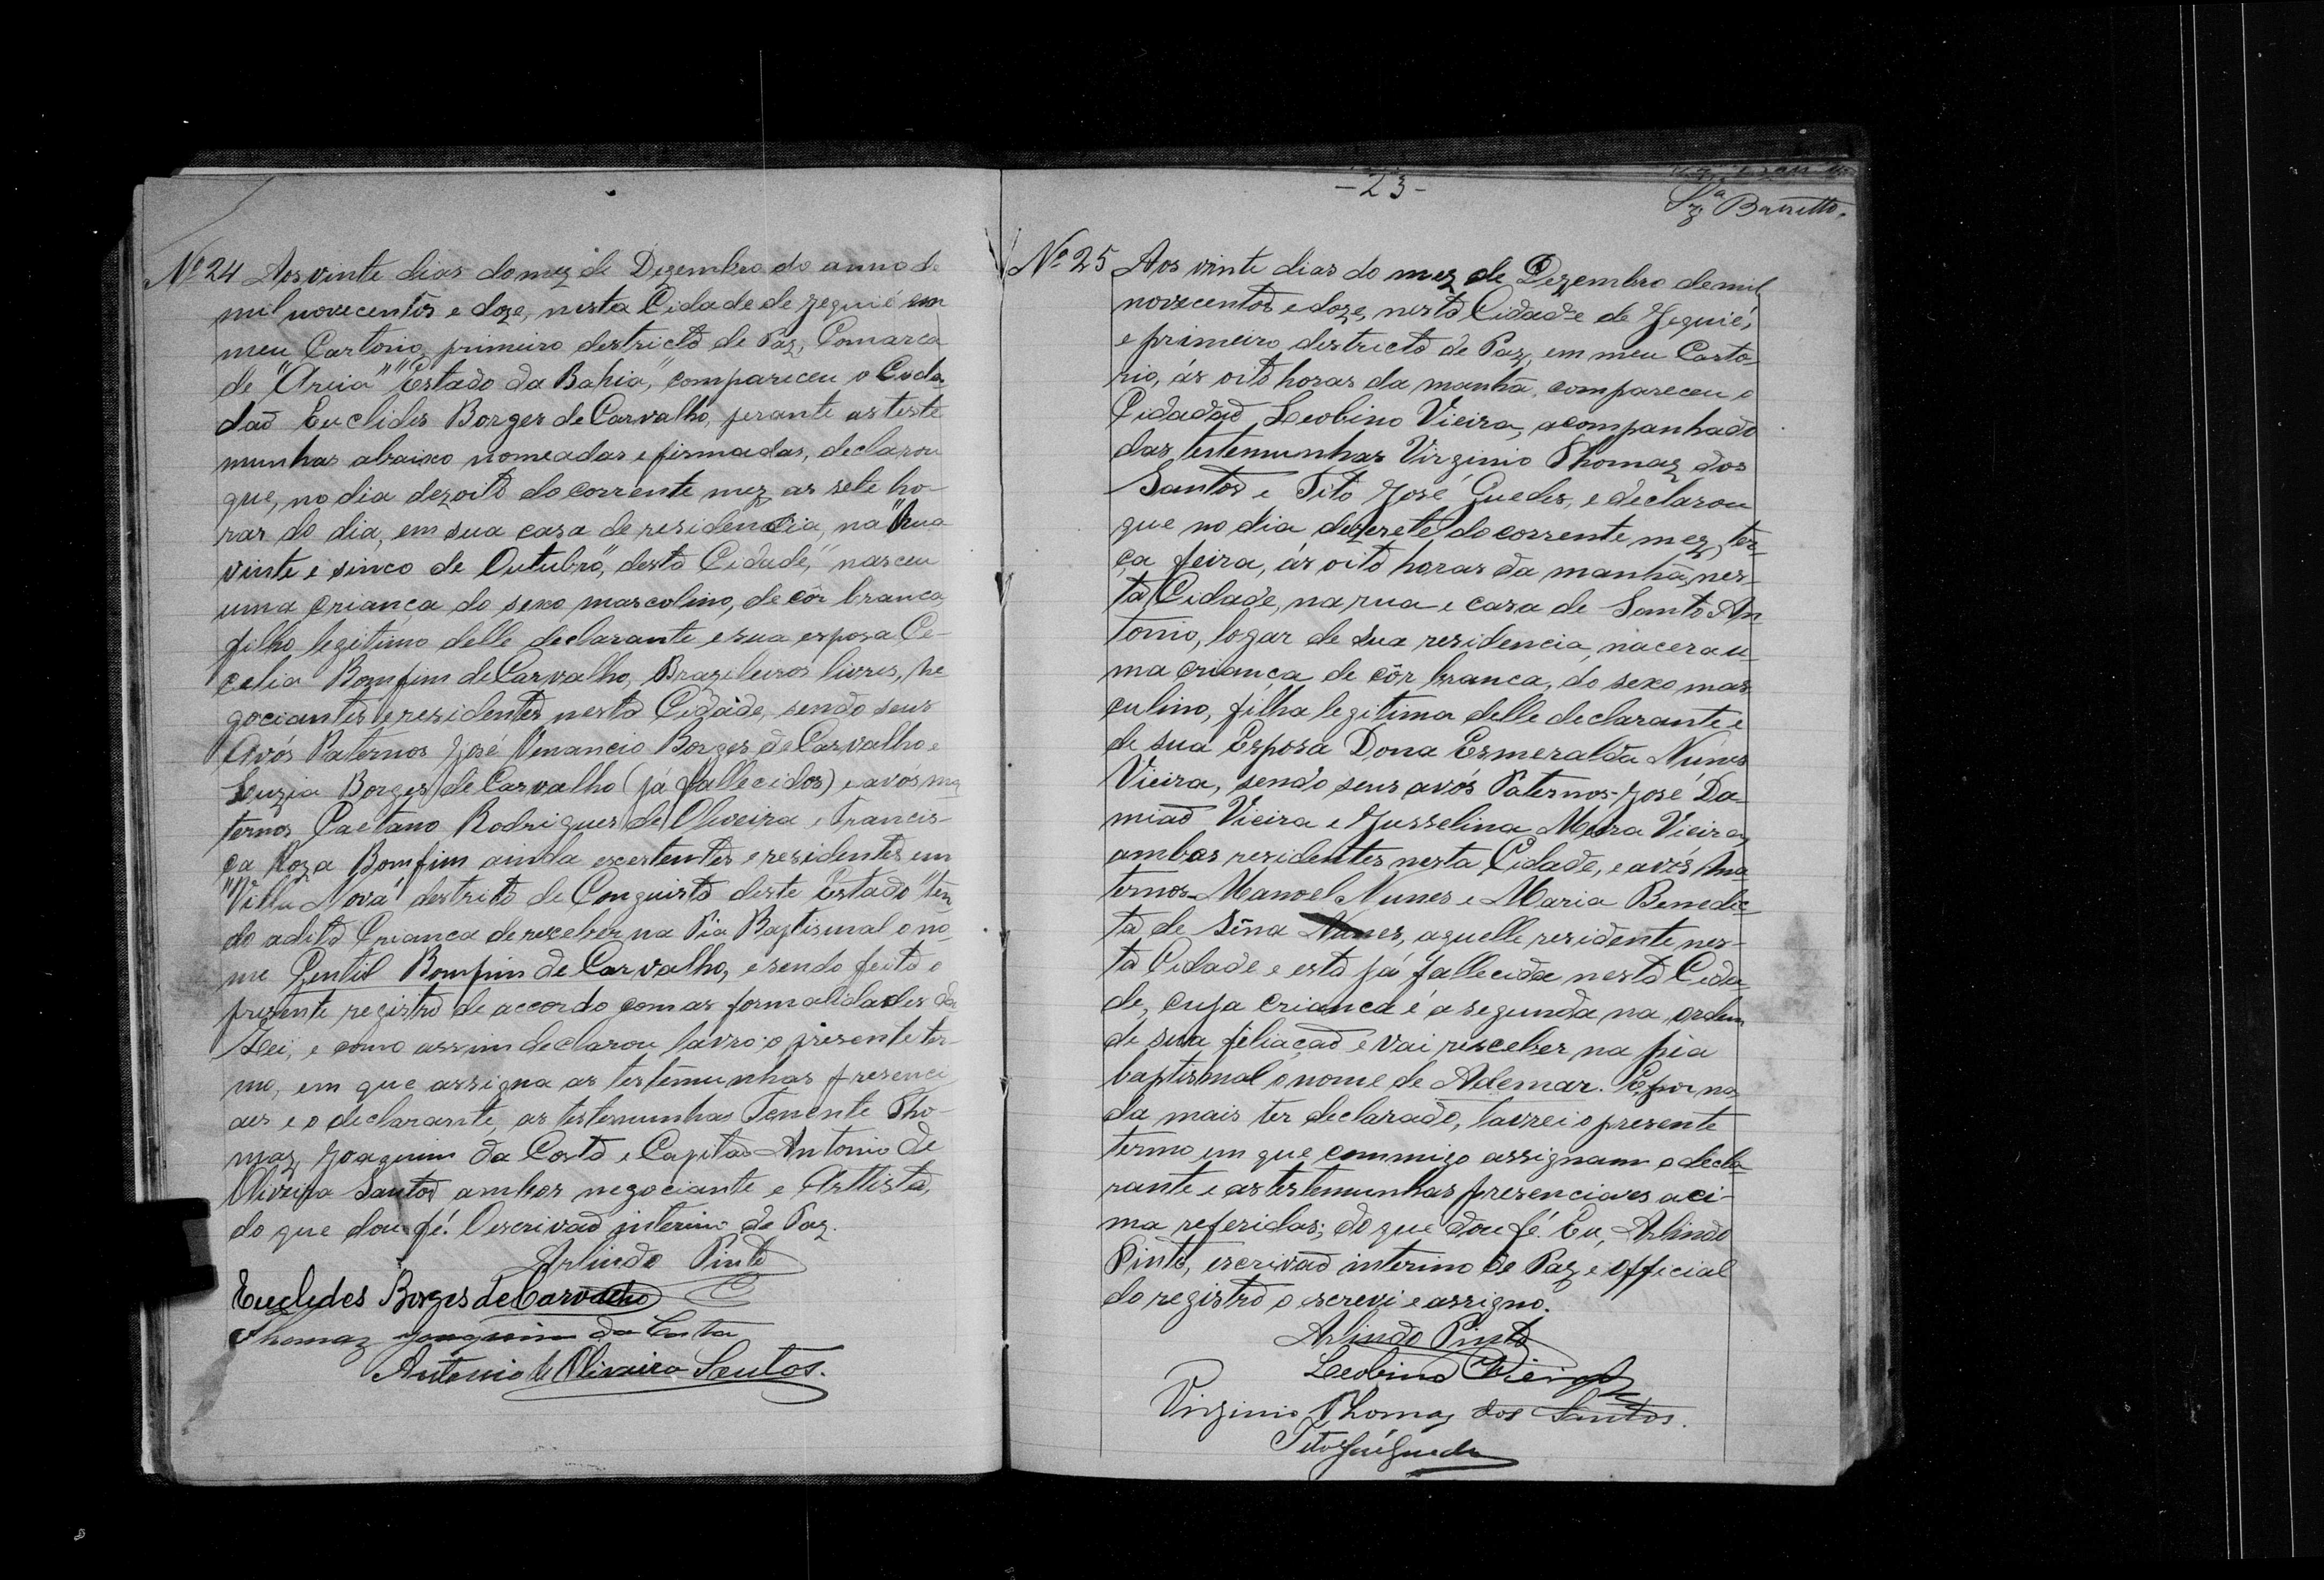 Nº 24 Aos vinte dias do mez de Dezembro do anno de
mil novecentos e doze, nesta Cidade de Jequié em
meu Cartorio, primeiro destricto de Paz, Comarca
de "Areia" "Estado da Bahia," compareceu o Cida
dão Euclides Borges de Carvalho, perante as teste
munhas abaixo nomeadas e firmadas, declarou
que, no dia dezoito do corrente mez as sete ho-
ras do dia, em sua casa de residencia, na "Rua
vinte e sinco de Outubro", desta Cidade," nasceu
uma criança do sexo mascolino, de côr branca,
filho legitimo delle declarante e sua esposa Ce-
celia Bomfim de Carvalho, Brazileiros livres, ne
gociantes e residentes nesta Cidade, sendo seus
Avós Paternos José Venancio Borges de Carvalho e
Luzia Borges de Carvalho (já fallecidos) e avós ma
ternos Caetano Rodrigues de Oliveira e Francis-
ca Roza Bomfim ainda existentes e residentes em
"Villa Nova" destrito de Conquista deste Estado" ten
do a dita Criança de receber na Pia Baptismal o no-
me Gentil Bomfim de Carvalho, e sendo feito o
presente registro de accordo com as formalidades da
Lei, e como assim declarou lavro o presente ter-
mo, em que assigna as testemunhas presenci
aes e o declarante, as testemunhas Tenente Tho-
maz Joaquim da Costa e Capitão Antonio de
Oliveira Santos ambos negociante e Arttista,
do que dou fé. O escrivão interino de Paz.
Arlindo Pinto
Euclides Borges de Carvalho
Thomaz Joaquim da Costa
Antonio de Oliveira Santos.
-23-
Barretto.
Nº 25 Aos vinte dias do mez de Dezembro de mil
novecentos e doze, nesta Cidade de Jequié,
e primeiro destricto de Paz, em meu Carto-
rio, ás oito horas da manhã, compareceu o
Cidadão Leobino Vieira, acompanhado
das testemunhas Virginio Thomaz dos
Santos e Tito José Guedes, e declarou
que no dia dezesete do corrente mez, ter-
ça feira, ás oito horas da manhã, nes-
ta Cidade, na rua e casa de Santo An
tonio, logar de sua residencia, nacera u-
ma criança de côr branca, do sexo mas
culino, filha legitima delle declarante e
de sua Esposa Dona Esmeralda Nunes
Vieira, sendo seus avós Paternos-José Da-
mião Vieira e Jusselina Meira Vieira,
ambos residentes nesta Cidade, e avós ma
ternos-Manoel Nunes e Maria Benedic
ta de Sena Nunes, aquelle residente nes-
ta Cidade e esta já fallecida nesta Cida-
de, cuja criança é a segunda na ordem
de sua filiação e vai receber na pia
baptismal o nome de Ademar. E por na-
da mais ter declarado, lavrei o presente
termo em que commigo assignam o decla
rante e as testemunhas presenciaes aci-
ma referidas; do que dou fé. Eu, Arlindo
Pinto, escrivão interino de Paz e Official
do registro o escrevi e assigno.
Arlindo Pinto
Leobino Vieira
Virginio Thomaz dos Santos.
Tito José Guedes